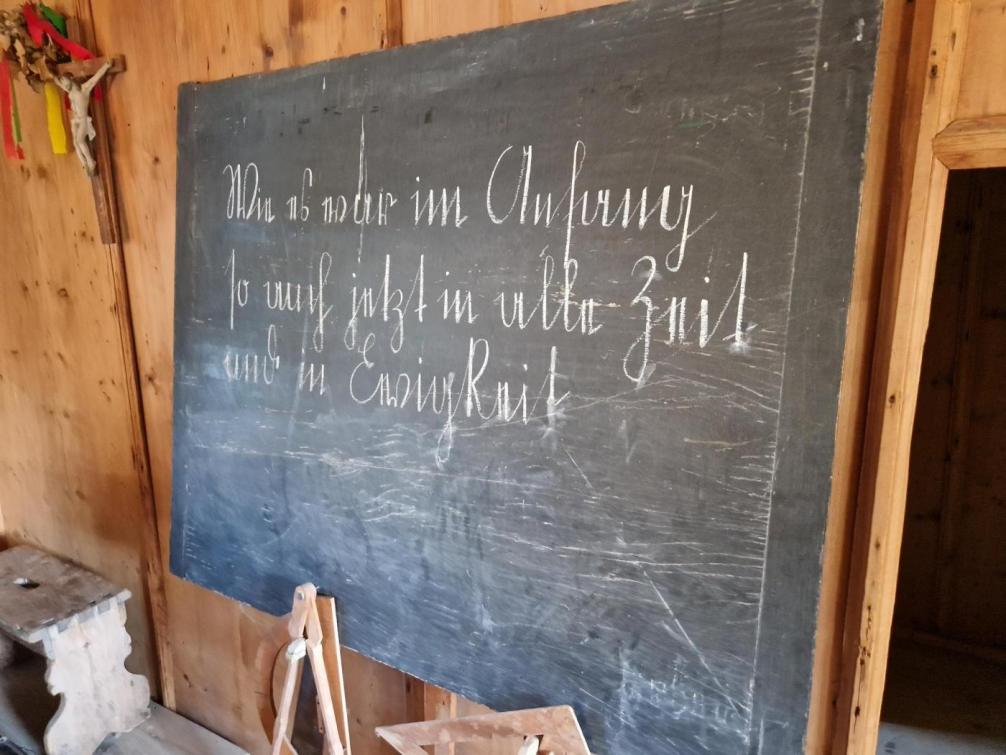 Wie es war im Anfang
so auch jetzt in alle Zeit
und in Ewigkeit